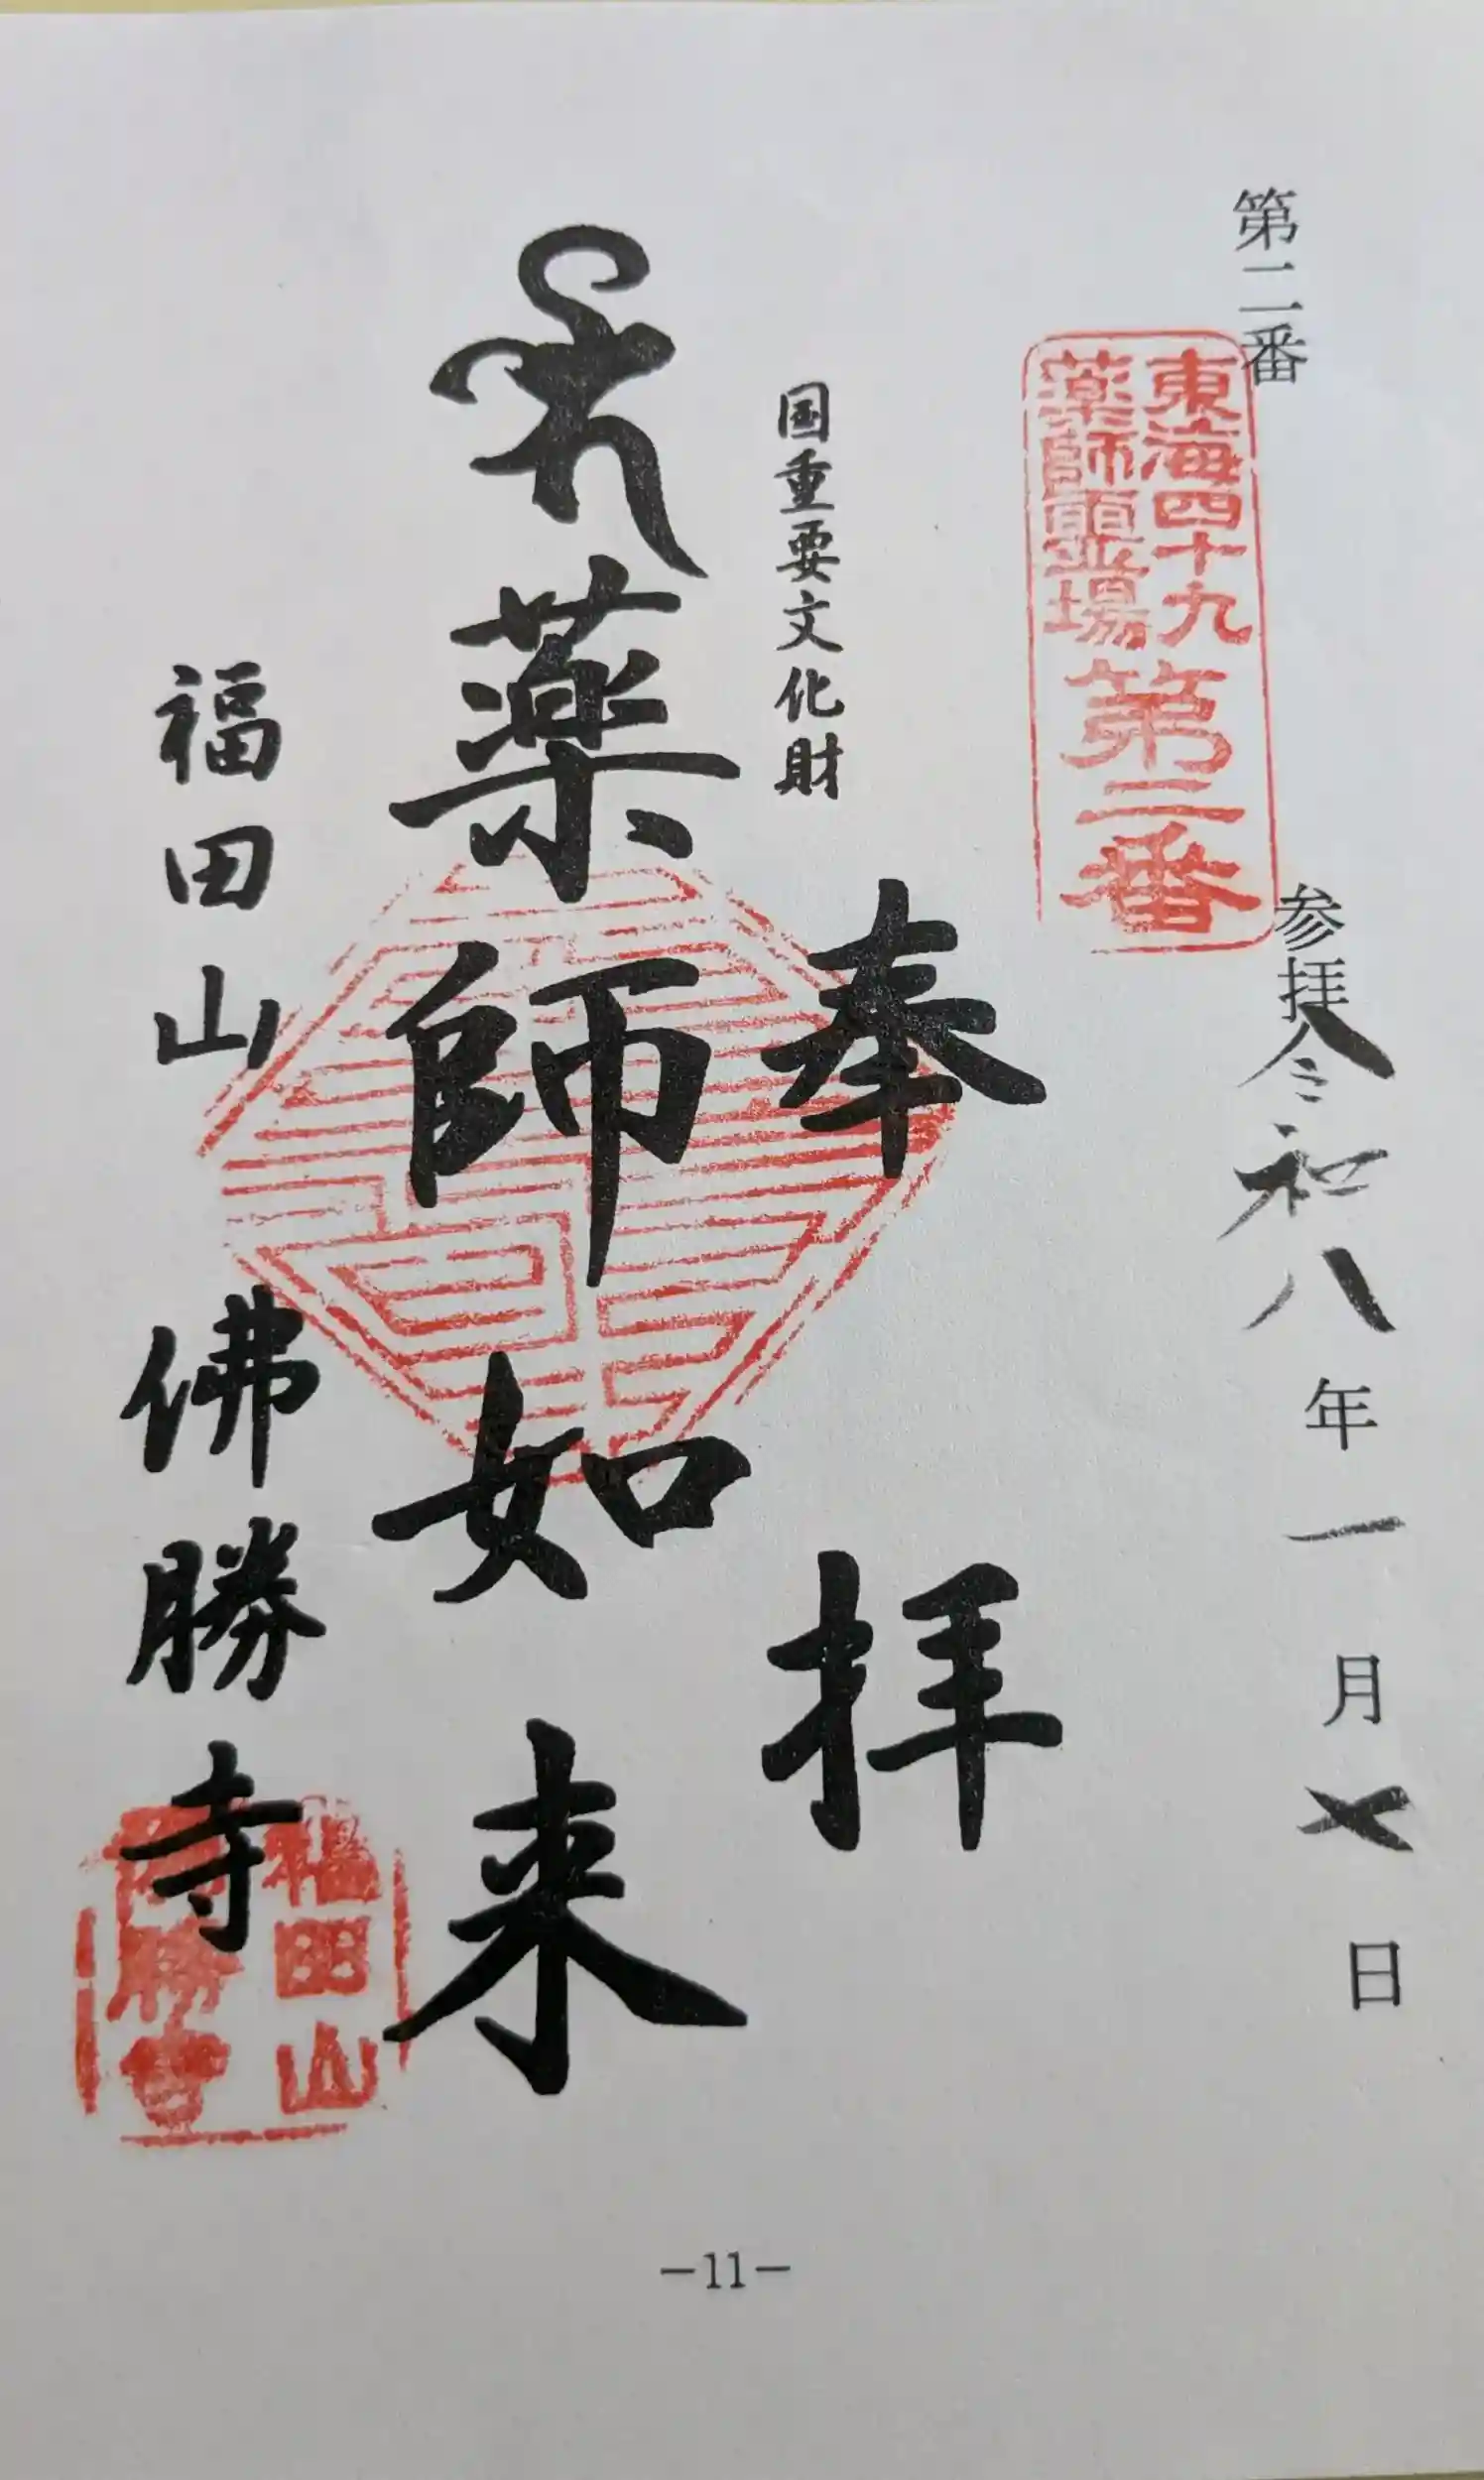 第二番
参拝令和八年一月七日
東海四十九
薬師霊場
第二番
奉拝
国重要文化財
薬師如来
福田山
佛勝寺
福田山
佛勝寺
-11-